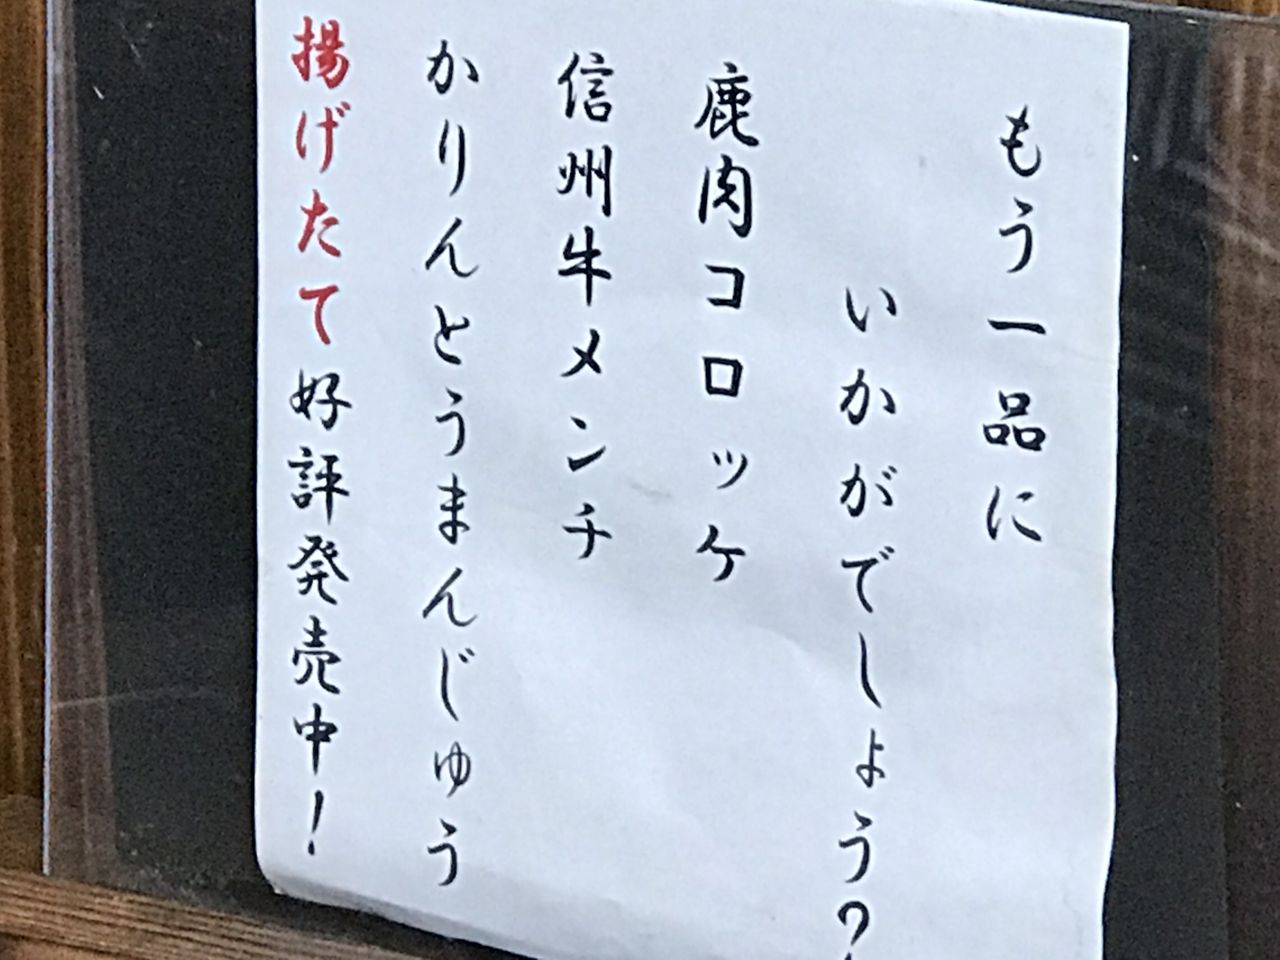 もう一品に
いかがでしょう?
鹿肉コロッケ
信州牛メンチ
かりんとうまんじゅう
揚げたて好評発売中!